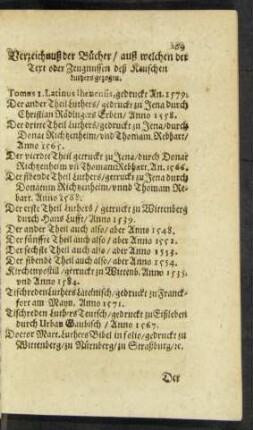 Verzeichnuß der Bücher / auß welchen der
Text oder Zeugnussen deß Keuschen
Luthers gezogen.
Tomus 1. Latinus Ihenensis, gedruckt An. 1579.
Der ander Theil Luthers / gedruckt zu Jena durch
Christian Rödingers Erben / Anno 1558.
Der dritte Theil Luthers / gedruckt zu Jena / durch
Donat Richtzenheim / vnd Thomam. Rebhart /
Anno 1565.
Der vierdte Theil getruckt zu Jena / durch Donat
Richtzenheim vñ Thomam Rebhart, An. 1566.
Der sibende Theil Luthers / getruckt zu Jena durch
Donatum Richtzenheim / vnnd Thomam Re-
bart. Anno
Der erste Theil Luthers / getruckt zu Wittenberg
durch Hans Lufft / Anno 1539.
Der ander Theil auch also / aber Anno 1548.
Der fünffte Theil auch also / aber Anno 1552.
Der sechste Theil auch also / aber Anno 1553.
Der sibende Theil auch also / aber Anno 1554.
Kirchenpostill / getruckt zu Wittenb. Anno 1535.
vnd Anno 1584.
Tischreden Luthers Lateinisch / gedruckt zu Franck-
fort am Mayn. Anno 1571.
Tischreden Luthers Teutsch / gedruckt zu Eißleben
durch Urban Gaubisch / Anno 1567.
Doctor Mart. Luthers Bibel in folio / gedruckt zu
Wittenberg / zu Nürnberg / zu Straßburg / ꝛc.
Der